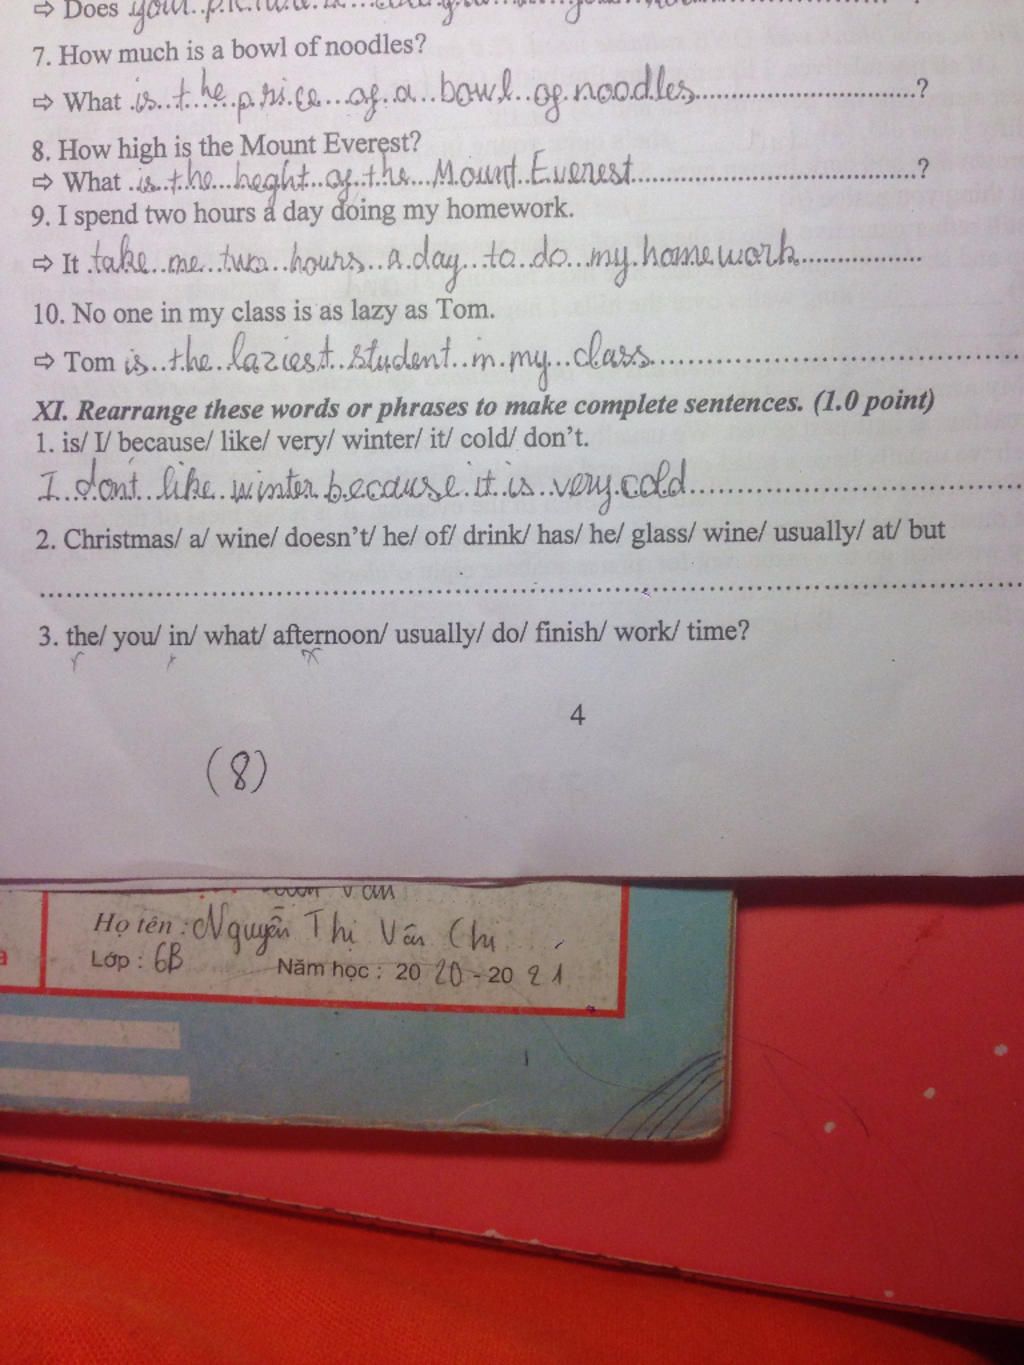 ⇨ Does your
7. How much is a bowl of noodles?
⇨ What is the price of a bowl of noodles?
8. How high is the Mount Everest?
⇨ What is the heght of the Mount Everest?
9. I spend two hours a day doing my homework.
⇨ It take me two hours a day to do my homework
10. No one in my class is as lazy as Tom.
⇨ Tom is the laziest student in my class
XI. Rearrange these words or phrases to make complete sentences. (1.0 point)
1. is/ I/ because/ like/ very/ winter/ it/ cold/ don't.
I don't like winter because it is very cold
2. Christmas/ a/ wine/ doesn't/ he/ of/ drink/ has/ he/ glass/ wine/ usually/ at/ but
3. the/ you/ in/ what/ afternoon/ usually/ do/ finish/ work/ time?
4
(8)
Họ tên : Nguyễn Thị Vân Chi
Lớp : 6B Năm học : 20 20 - 20 21